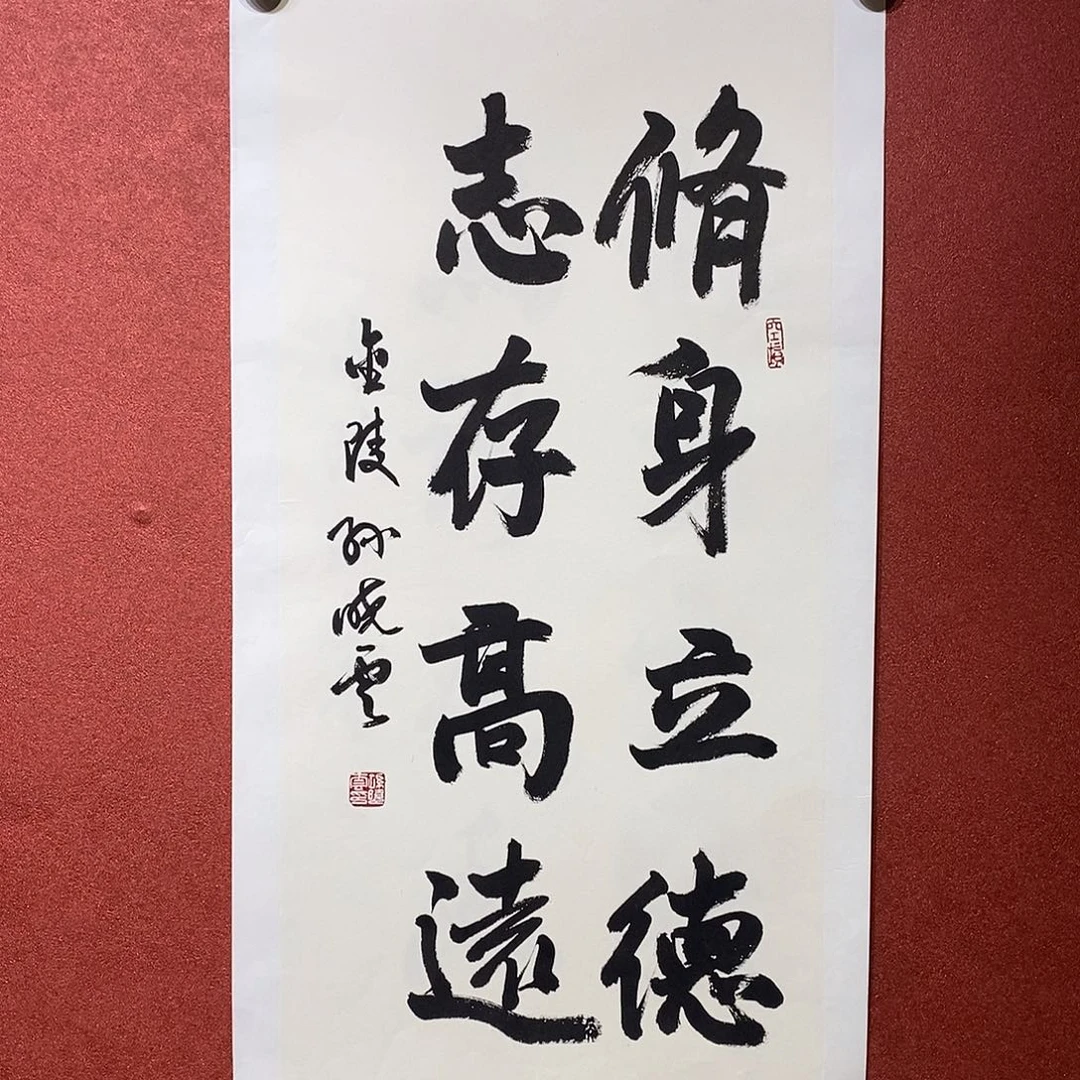 脩身立德
志存高遠
金陵孙晓云